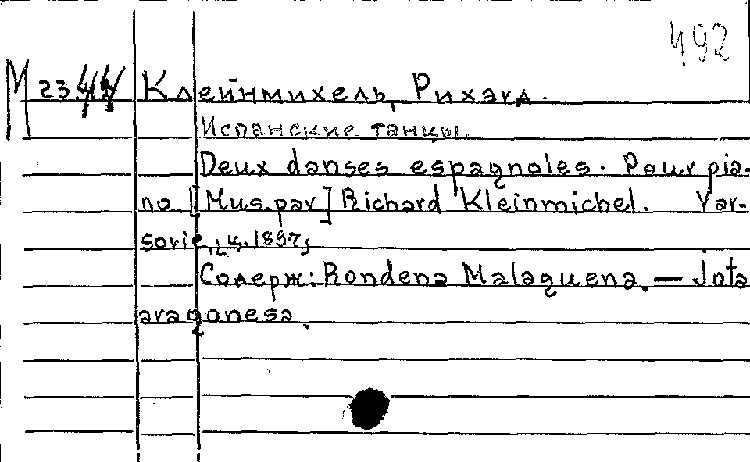 492
М 23 Клейнмихель, Рихард.
Испанские танцы.
Deux danses espagnoles. Pour pia-
no [Mus.par] Richard Kleinmichel. Var-
sovie, 1897,
Содерж: Rondena Malaguena. — Jota
aragonesa.